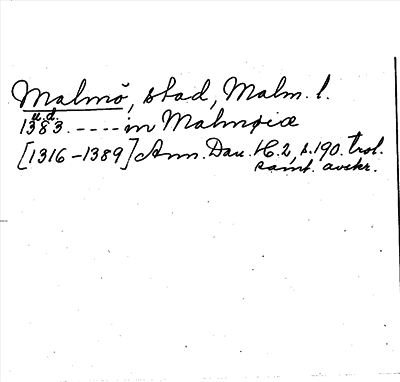 Malmö, stad, Malm. l.
u.d.
1383. ---- in Malmøiæ
[1316-1389] Ann. Dan. H.2, s.190. Trol.
samt. avskr.